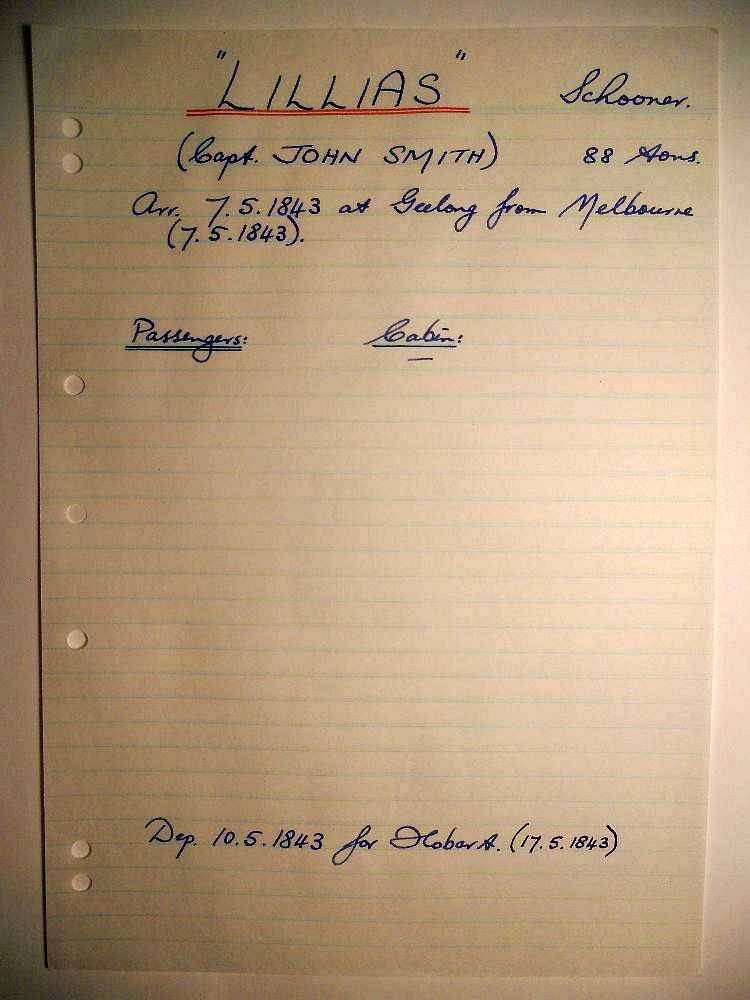 "LILLIAS" Schooner.
(Capt. JOHN SMITH) 88 tons.
Arr. 7.5.1843 at Geelong from Melbourne
(7.5.1843).
Passengers: Cabin:
—
Dep. 10.5.1843 for Hobart. (17.5.1843)